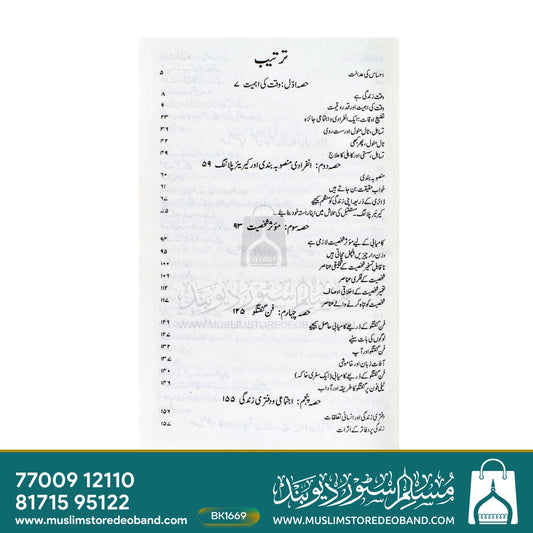 ترتیب
احساس کی عدالت ۵
حصہ اوّل: وقت کی اہمیت ۷
وقت زندگی ہے ۸
وقت کی اہمیت اور قدر و قیمت ۹
تضیع اوقات: ایک انفرادی و اجتماعی جائزہ ۲۳
تساہل، ٹال مٹول اور سست روی ۳۶
ٹال مٹول، پھر بھی ۴۲
تساہل، سستی اور کاہلی کا علاج ۴۹
حصہ دوم: انفرادی منصوبہ بندی اور کیریئر پلاننگ ۵۹
منصوبہ بندی ۶۰
خواب حقیقت بن جاتے ہیں ۶۱
ڈائری کے ذریعہ اپنی زندگی کو منظم کیجیے ۶۷
کیریئر پلاننگ۔ مستقبل کی تلاش میں اپنا راستہ خود بنایئے۔۔ ۷۵
حصہ سوم: مؤثر شخصیت ۹۳
کامیابی کے لیے مؤثر شخصیت لازمی ہے ۹۴
وزن دار چیزیں ہلچل مچاتی ہیں ۹۵
ناقابل تسخیر شخصیت کے تخلیقی عناصر ۱۰۰
شخصیت کے فکری عناصر ۱۰۶
تعمیر شخصیت کے اخلاقی اوصاف ۱۱۲
شخصیت کو تباہ کرنے والے عناصر ۱۱۷
حصہ چہارم: فن گفتگو ۱۲۵
فن گفتگو کے ذریعے کامیابی حاصل کیجیے ۱۲۶
لوگوں کی بات سنیے ۱۲۷
فن گفتگو اور آپ ۱۳۲
آفات زبان اور خاموشی ۱۳۷
فن گفتگو کے ذریعے کامیابی (ایک سطری خاکہ) ۱۴۰
ٹیلی فون پر گفتگو کا طریقہ اور آداب ۱۴۶
حصہ پنجم: اجتماعی و دفتری زندگی ۱۵۵
دفتری زندگی اور انسانی تعلقات ۱۵۶
زندگی پر دفاتر کے اثرات ۱۵۷
مسلم سٹور دیوبند
WWW.MUSLIMSTOREDEOBAND.COM
77009 12110
81715 95122
www.muslimstoredeoband.com
BK1669
مسلم سٹور دیوبند
WWW.MUSLIMSTOREDEOBAND.COM